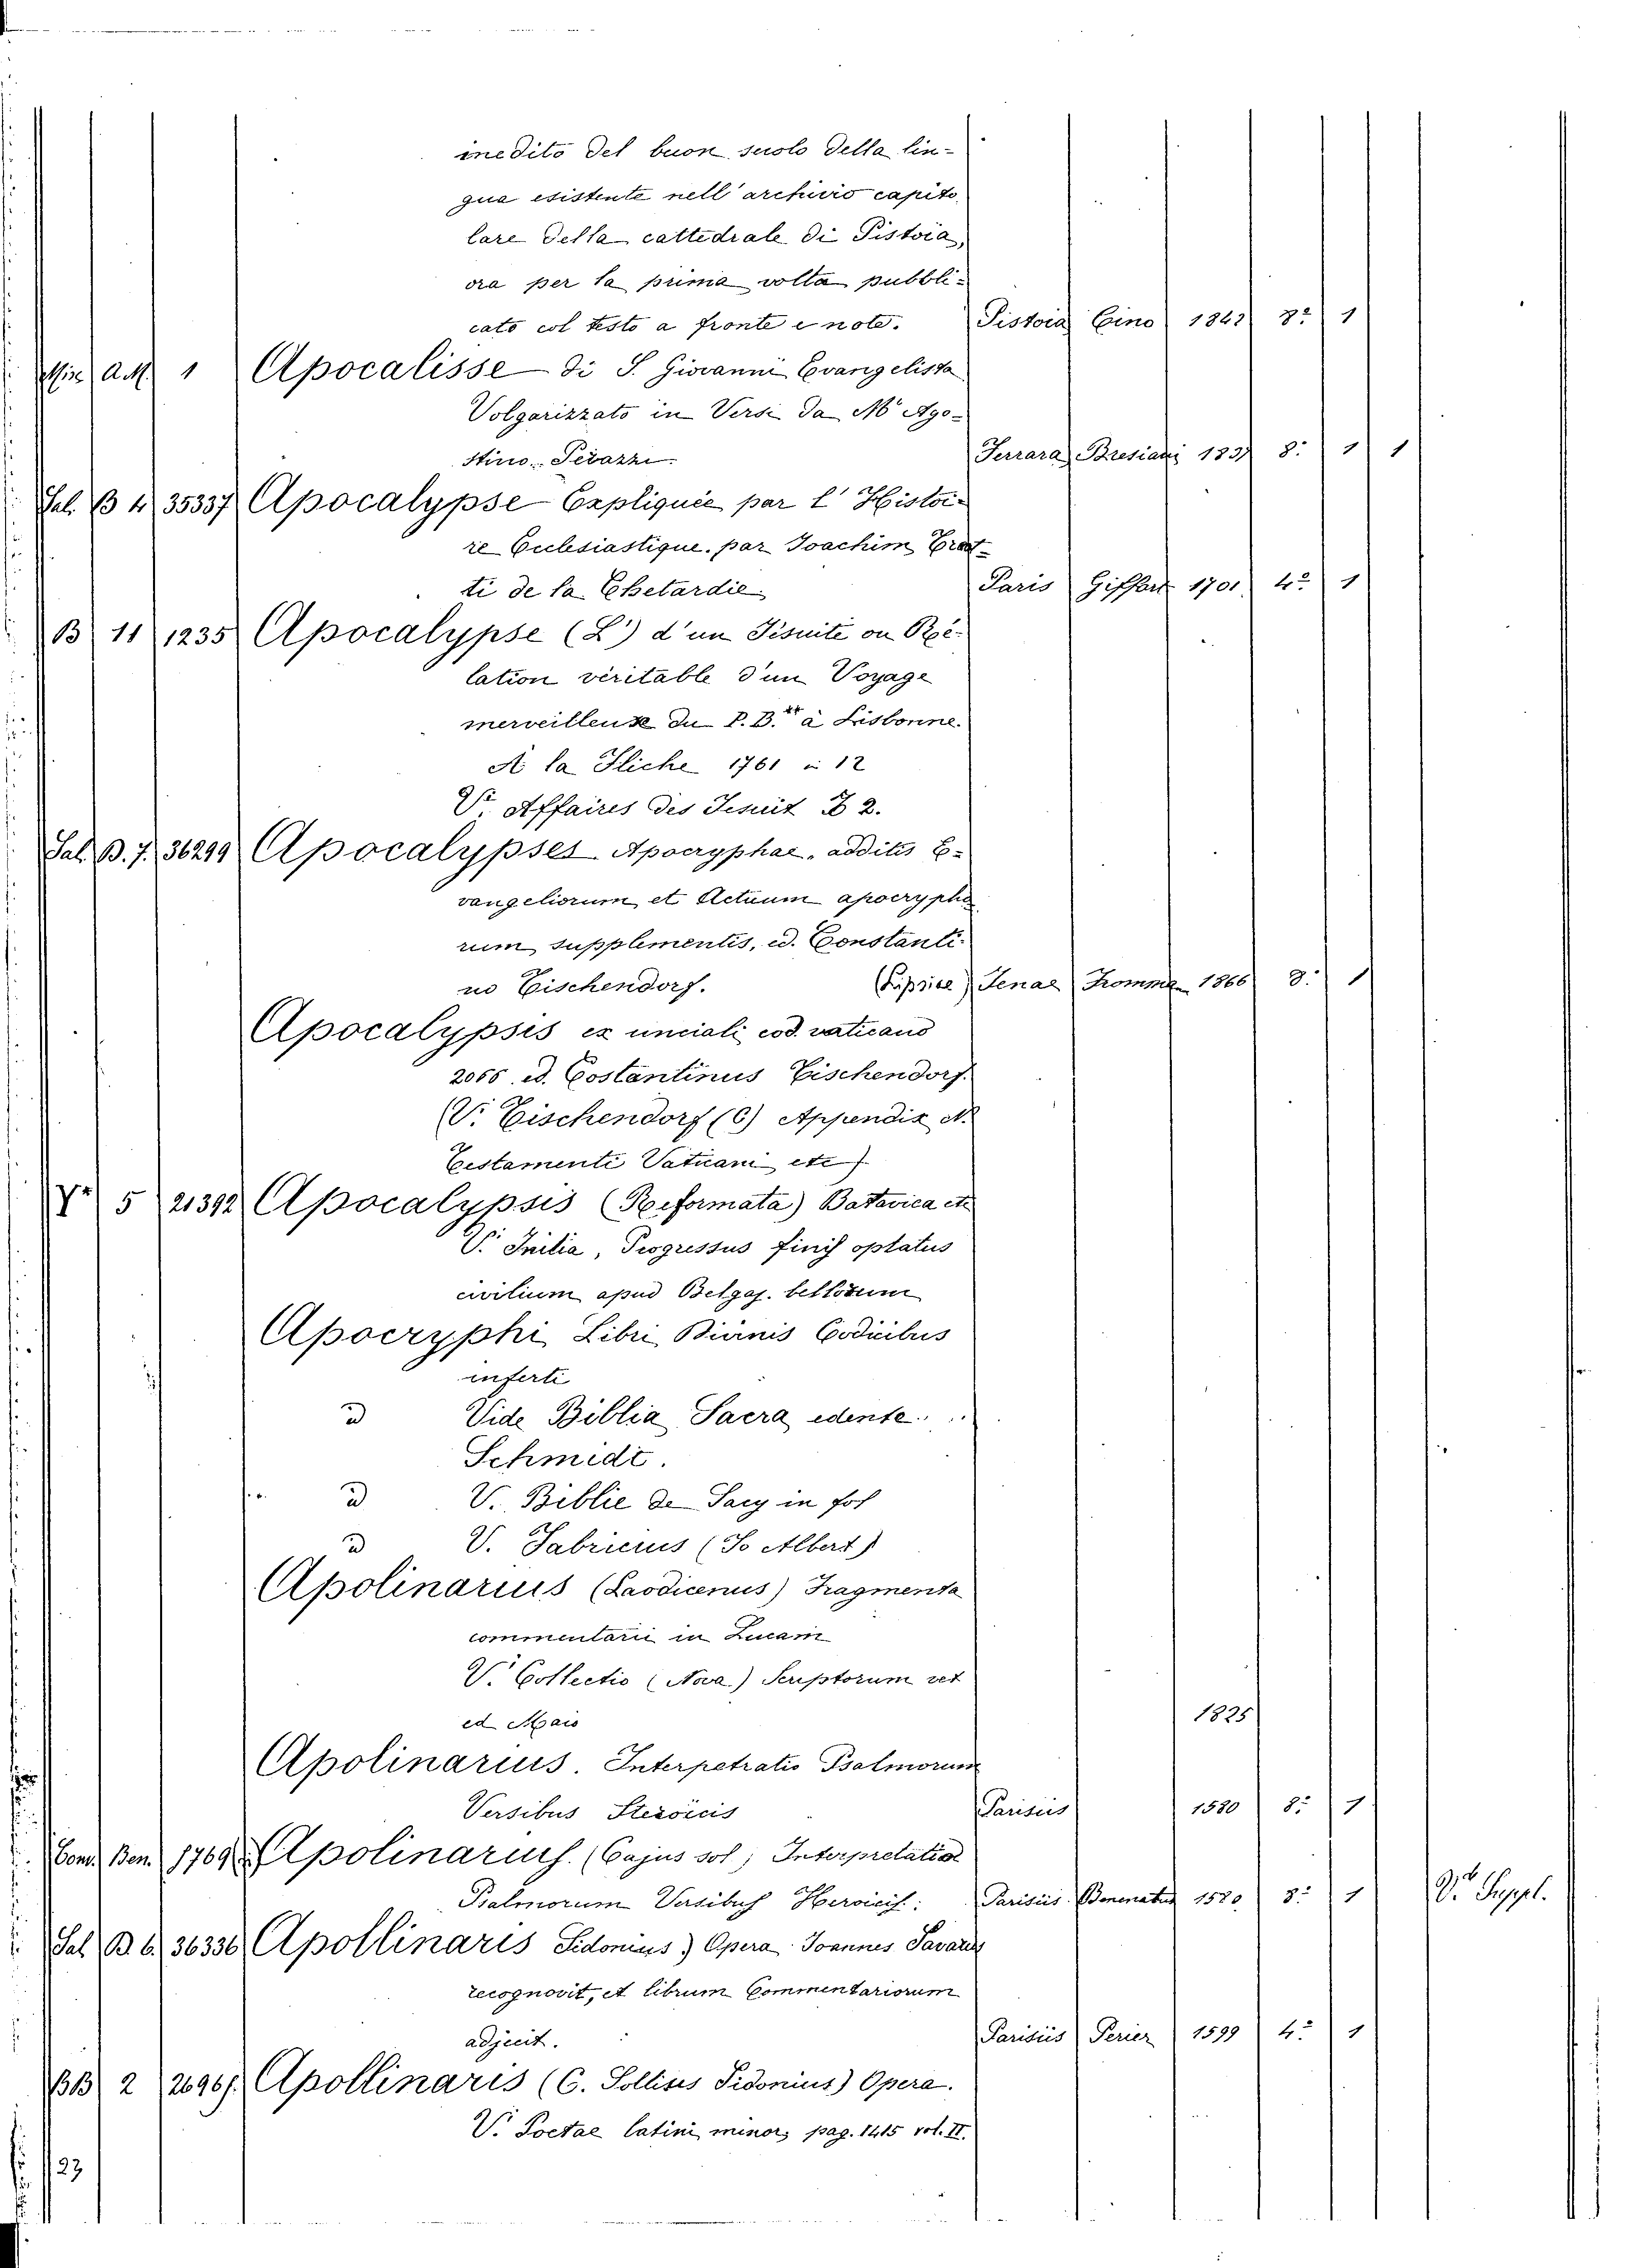 inedito del buon secolo della lin-
gua esistente nell'archivio capito
lare della cattedrale di Pistoia,
ora per la prima volta pubbli-
cato col testo a fronte e note. Pistoia Cino 1842 8º 1
Min A.M. 1 Apocalisse di S. Giovanni Evangelista
Volgarizzato in Versi da Mr Ago-
stino Perazzi. Ferrara Bresiani 1837 8: 1 1
Sal. B 4 35337 Apocalypse Expliquée par l'Histoi-
re Ecclesiastique. par Joachim Trot-
ti de la Chetardie Paris Giffart 1701 4º 1
B 11 1235 Apocalypse (L') d'un Jesuite ou Re-
lation véritable d'un Voyage
merveilleuse du P. B.** à Lisbonne.
A la Fliche 1761 in 12
Vi Affaires des Jesuit 2.
Sal. B. 7. 36299 Apocalypses Apocryphae, additis E-
vangeliorum et Actuum apocrypho
rum supplementis, ed. Constanti-
no Tischendorf. (Lipsiae) Jenae Fromman 1866 8. 1
Apocalypsis ex unciali cod. vaticano
2066. ed. Costantinus Tischendorf.
(V. Tischendorf (C) Appendix N.
Testamenti Vaticani etc)
Y 5 21392 Apocalypsis (Reformata) Batavica etc
V. Initia, Progressus finis optatus
civilium apud Belgas. bellorum
Apocryphi Libri Biinis Codicibus
inferti
id Vide Biblia Sacra edente
Schmidt.
id V. Biblie de Sacy in fol
id V. Fabricius (Jo Albert)
Apolinarius (Laodicenus) Fragmenta
commentarii in Lucam
V. Collectio (Nova) Scriptorum vet
ed Maio 1825
Apolinarius. Interpetratio Psalmorum
Versibus Steroicis Parisiis 1580 8: 1
Com. Ben. 1769 Apolinarius. (Cajus sol) Interpretatio
Psalmorum Versibus Heroicis: Parisiis Benenatus 1580 8: 1 Vi Suppl.
Sal B 6. 36336 Apollinaris Sidonius) Opera Joannes Savaro
recognovit, et librum Commentariorum
adjecit. Parisiis Perier 1599 4: 1
BB 2 2696 Apollinaris (C. Sollisis Sidonius) Opera.
V. Poetae latini minor, pag. 1415 vol. II.
123